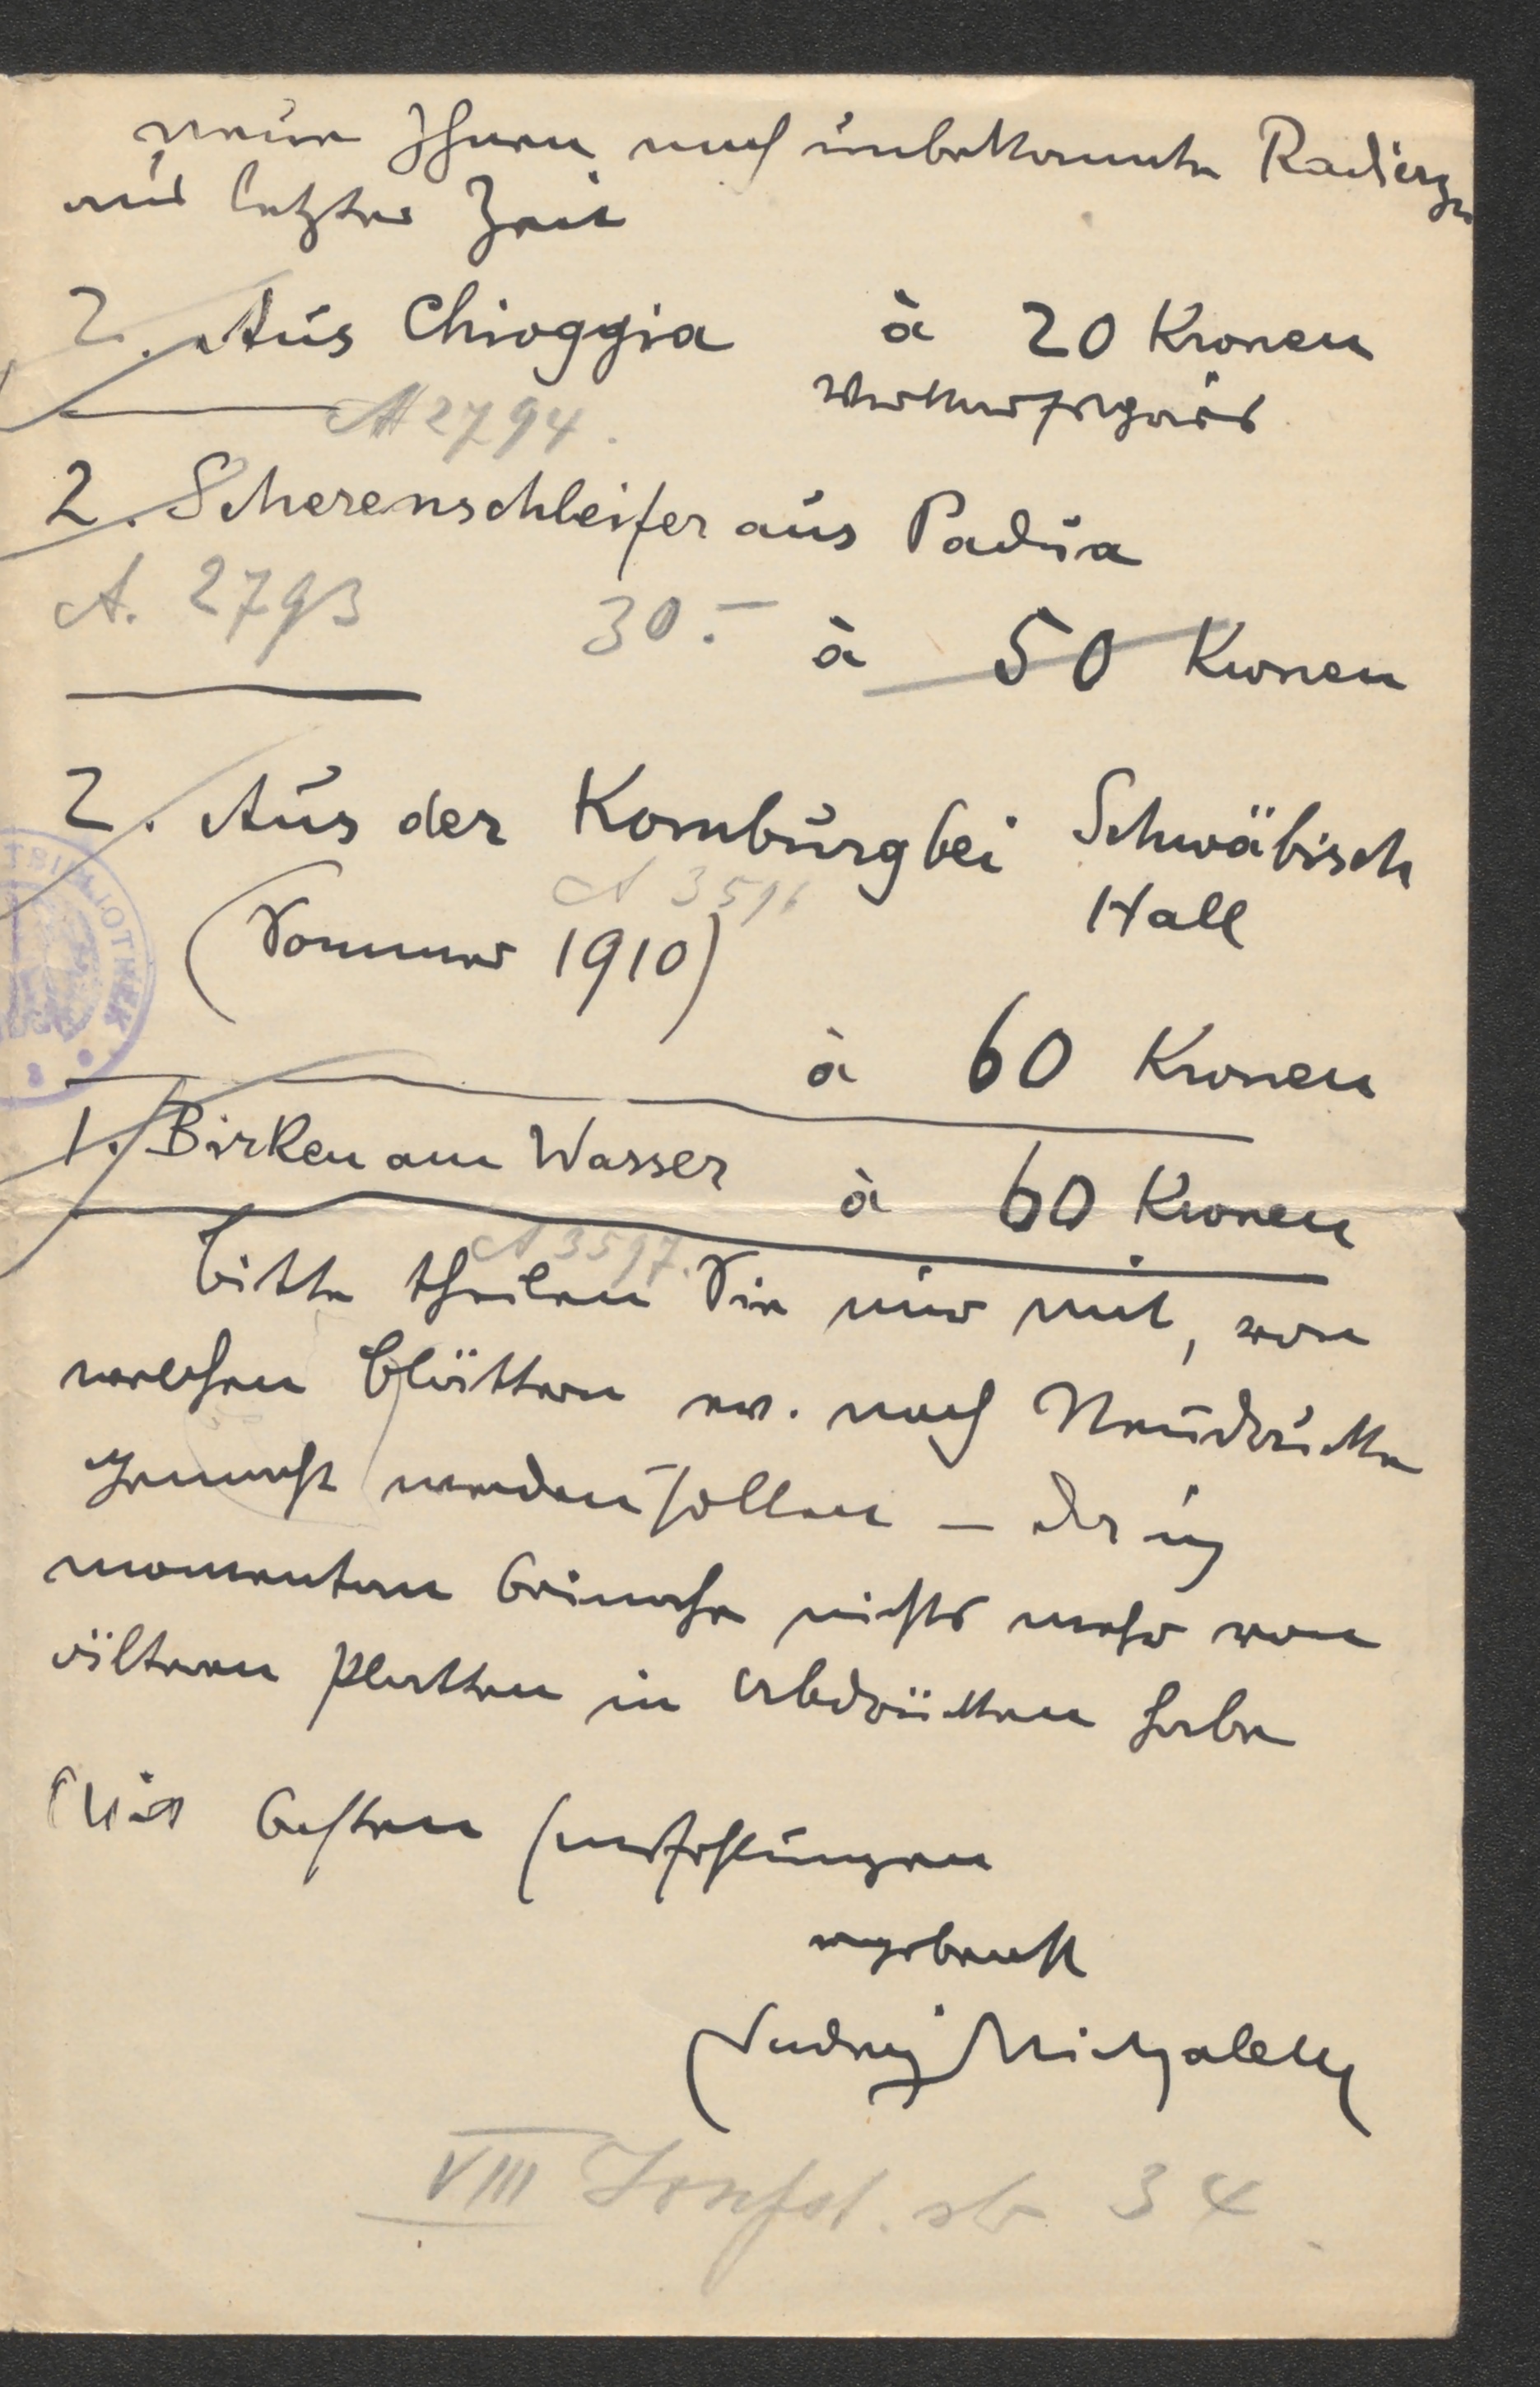 neue Ihnen noch unbekannte Radierg.
aus letzter Zeit
2. Aus Chioggia à 20 Kronen
A 2794.
2. Scherenschleifer aus Padua
A. 2793 30.– à 50 Kronen
2. Aus der Komburg bei Schwäbisch
Hall
A 3596
(Sommer 1910)
à 60 Kronen
1. Birken am Wasser à 60 Kronen
A 3597.
bitte theilen Sie mir mit, von
welchen Blättern ev. noch Neudrucke
gemacht werden sollen – da ich
momentan beinahe nichts mehr von
älteren Platten in Abdrücken habe
Mit besten Empfehlungen
ergebenst
Ludwig Michalek
VIII 34